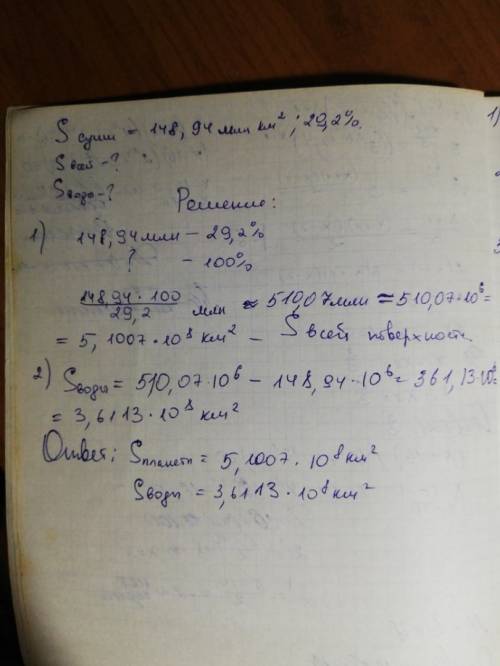 S суши = 148,94 млн км²; 29,2%.
S всей - ?
S воды - ?
Решение:
1) 148,94 млн – 29,2%
? – 100%
148,94 · 100
29,2
млн ≈ 510,07 млн = 510,07·10⁶ =
= 5,1007 · 10⁸ км² – S всей поверхности
2) S воды = 510,07·10⁶ – 148,94·10⁶ = 361,13·10⁶
= 3,6113 · 10⁸ км²
Ответ: S планеты = 5,1007 · 10⁸ км²
S воды = 3,6113 · 10⁸ км²
1)